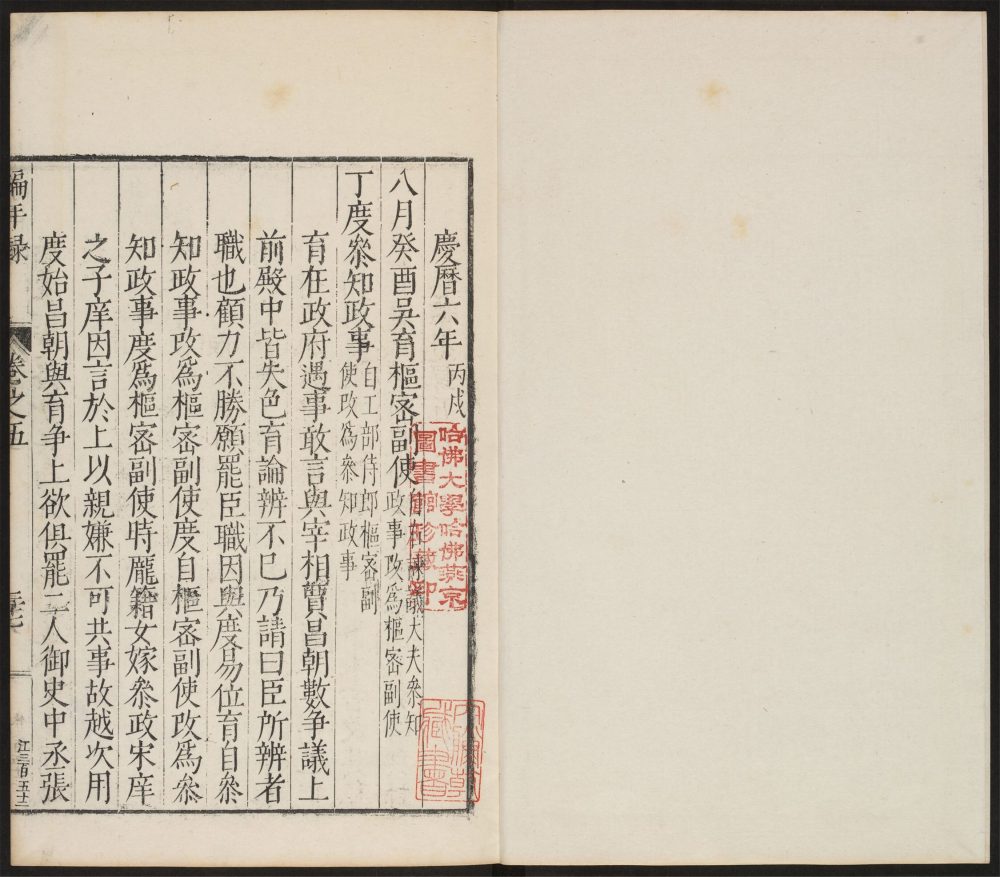 慶曆六年丙戌
八月癸酉吳育樞密副使自右諫議大夫參知政事改爲樞密副使
丁度叅知政事自工部侍郎樞密副使改爲叅知政事
育在政府遇事敢言與宰相賈昌朝數爭議上
前殿中皆失色育論辨不已乃請曰臣所辨者
職也顧力不勝願罷臣職因與度易位育自叅
知政事改爲樞密副使度自樞密副使改爲叅
知政事度爲樞密副使時龐籍女嫁叅政宋庠
之子庠因言於上以親嫌不可共事故越次用
度始昌朝與育爭上欲俱罷二人御史中丞張
編年錄
卷之五
三七
江三百五十二
哈佛大學哈佛燕京
圖書館珍藏印
藏書